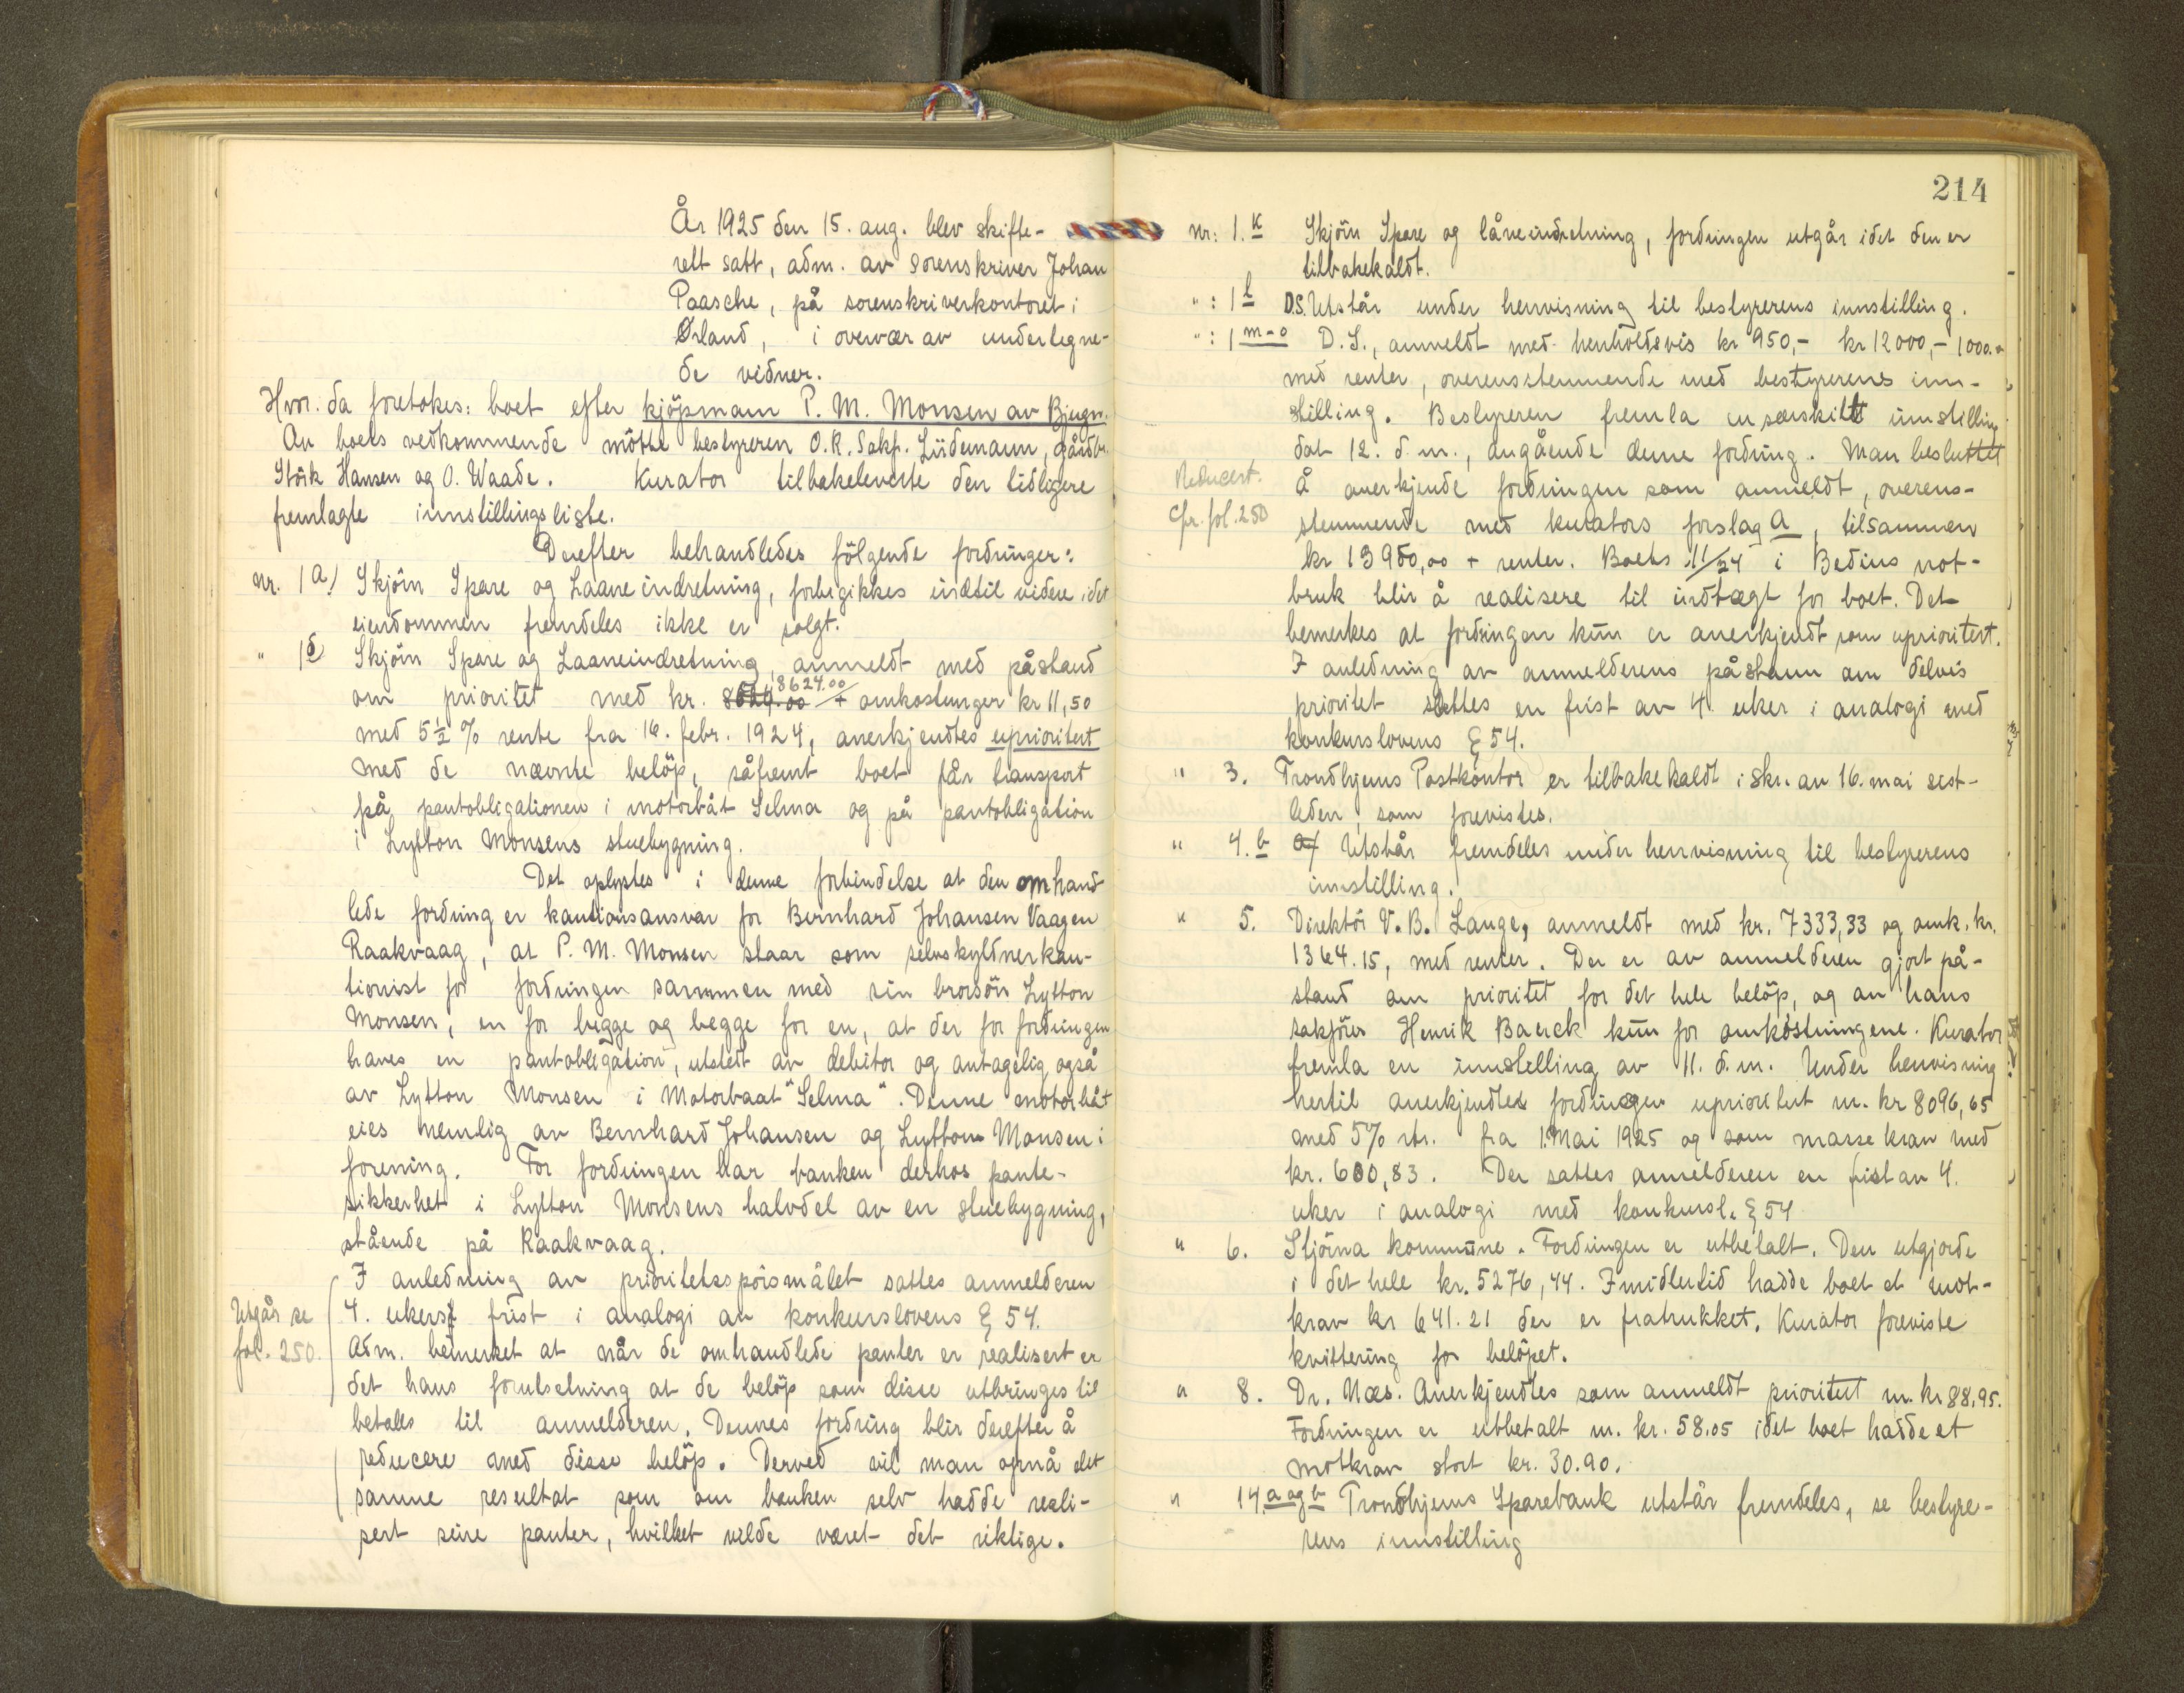 År 1925 den 15. aug. blev skifte-
rett satt, adm. av sorenskriver Johan
Paasche, på sorenskriverkontoret i
Ørland, i overvær av undertegne-
de vidner.
Hvor. da foretokes: boet efter kjöpmann P. M. Monsen av Bjugn.
Av boets vedkommende mötte bestyreren O.R. Sakf. Lüdemann, gårdbr.
Störk Hansen og O. Waade. Kurator tilbakeleverte den tidligere
fremlagte innstillingsliste.
Derefter behandledes följende fordringer:
nr. 1 a) Skjörn Spare og Laaneindretning, forbigikkes indtil videre idet
eiendommen fremdeles ikke er solgt.
" 1 b) Skjörn Spare og Laaneindretning, anmeldt med påstand
om prioritet med kr. 8624.00 + omkostninger kr 11,50
med 5½ % rente fra 16. febr. 1924, anerkjendtes uprioritert
med de nævnte belöp, såfremt boet får transport
på pantobligationen i motorbåt Selma og på pantobligation
i Lytton Monsens stuebygning.
Det oplystes i denne forbindelse at den omhand-
lede fordring er kautionsansvar for Bernhard Johansen Vaagen
Raakvaag, at P. M. Monsen staar som selvskyldnerkau-
tionist for fordringen sammen med sin brorsön Lytton
Monsen, en for begge og begge for en, at der for fordringen
haves en pantobligation, utstedt av debitor og antagelig også
av Lytton Monsen i Motorbaat "Selma". Denne motorbåt
eies nemlig av Bernhard Johansen og Lytton Monsen i
forening. For fordringen har banken derhos pante-
sikkerhet i Lytton Monsens halvdel av en stuebygning,
stående på Raakvaag.
I anledning av prioritetsspörsmålet sattes anmelderen
4. ukers frist i analogi av konkurslovens § 54.
Utgår se
fol. 250.
Adm. bemerket at når de omhandlede panter er realisert er
det hans forutsetning at de belöp som disse utbringes til
betales til anmelderen. Dennes fordring blir derefter å
reducere med disse belöp. Derved vil man opnå det
samme resultat som om banken selv hadde reali-
sert seine panter, hvilket vilde været det riktige.
214
nr: 1. k Skjörn Spare og låneindretning, fordringen utgår idet den er
tilbakekaldt.
" : 1 l D.S. Utstår under henvisning til bestyrerens innstilling.
" : 1 m-o D.S., anmeldt med henholdsvis kr 950,- kr 12000,- 1000.-
med renter, overensstemmende med bestyrerens inn-
stilling. Bestyreren fremla en særskilt innstilling
dat 12. d.m., angående denne fordring. Man besluttet
å anerkjende fordringen som anmeldt, overens-
stemmende med kurators forslag a, tilsammen
Reducert.
Cfr. fol. 250
kr 13950,00 + renter. Boets 11/24 i Bedins not-
bruk blir å realisere til indtægt for boet. Det
bemerkes at fordringen kun er anerkjendt som uprioritert.
I anledning av anmelderens påstann om delvis
prioritet sattes en frist av 4 uker i analogi med
konkurslovens § 54.
" 3. Trondhjems Postkontor er tilbakekaldt i skr. av 16. mai sist-
leden, som forevistes.
" 4. b Utstår fremdeles under henvisning til bestyrerens
innstilling.
" 5. Direktör V. B. Lange, anmeldt med kr. 7333,33 og omk. kr.
1364.15, med renter. Der er av anmelderen gjort på-
stand om prioritet for det hele belöp, og av hans
sakförer Henrik Baerck kun for omkostningene. Kurator
fremla en innstilling av 11. d.m. Under henvisning
hertil anerkjendtes fordringen uprioritert m. kr 8096,65
med 5% rtr. fra 1. Mai 1925 og som massekrav med
kr. 600,83. Der sattes anmelderen en frist av 4.
uker i analogi med konkursl. § 54
" 6. Stjörna kommune. Fordringen er utbetalt. Den utgjorde
i det hele kr. 5276,44. Imidlertid hadde boet et mot-
krav kr 641.21 der er fratrukket. Kurator foreviste
kvittering for belöpet.
" 8. Dr. Næs. Anerkjendtes som anmeldt prioritert m. kr 88,95.
Fordringen er utbetalt m. kr. 58.05 idet boet hadde et
motkrav stort kr. 30.90.
" 14. a og b Trondhjems Sparebank utstår fremdeles, se bestyre-
rens innstilling